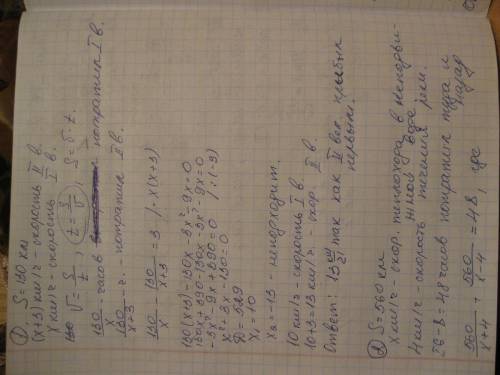 ① S = 130 км
(x+3) км/ч - скорость II в.
x км/ч - скорость I в.
V = S/t, t = S/v, S = v·t.
130/x часов потратил I в.
130/x+3 ч. - потратил II в.
130/x - 130/x+3 = 3 /· x(x+3)
130(x+3) - 130x - 3x² - 9x = 0
130x + 390 - 130x - 3x² - 9x = 0
-3x² - 9x + 390 = 0 /:(-3)
x² + 3x - 130 = 0
D = 529
x₁ = 10
x₂ = -13 - не подходит.
10 км/ч - скорость I в.
10+3 = 13 км/ч - скор. II в.
Ответ: 13 км/ч так как II вел. прибыл
первым.
② S = 560 км
x км/ч - скор. теплохода в неподви-
жной воде
4 км/ч - скорость течения реки.
56 - 8 = 48 часов потратил туда и
назад
560/x+4 + 560/x-4 = 48, где